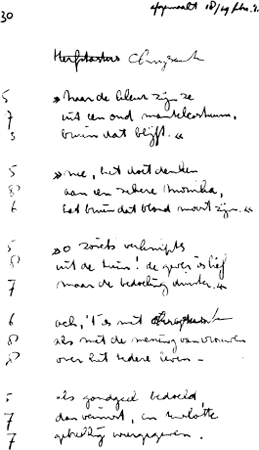 30
afgemaakt 18/19
Herfstasters Chrysant
5 »naar de kleur zijn ze
7 uit een oud mantelkostuum,
5 bruin dat blijft.«
5 »nee, het doet denken
8 aan een zekere Monika,
6 het bruin dat blond moet zijn.«
5 »o zoiets verknipts
8 uit de tuin! de gever is lief
7 maar de bedoeling duister.«
6 ach, 't is met
8 als met de mening van vrouwen
8 over het tedere leven –
5 als goudgeel bedoeld,
7 dan verinnt, en tenslotte
7 gebrekkig weergegeven.